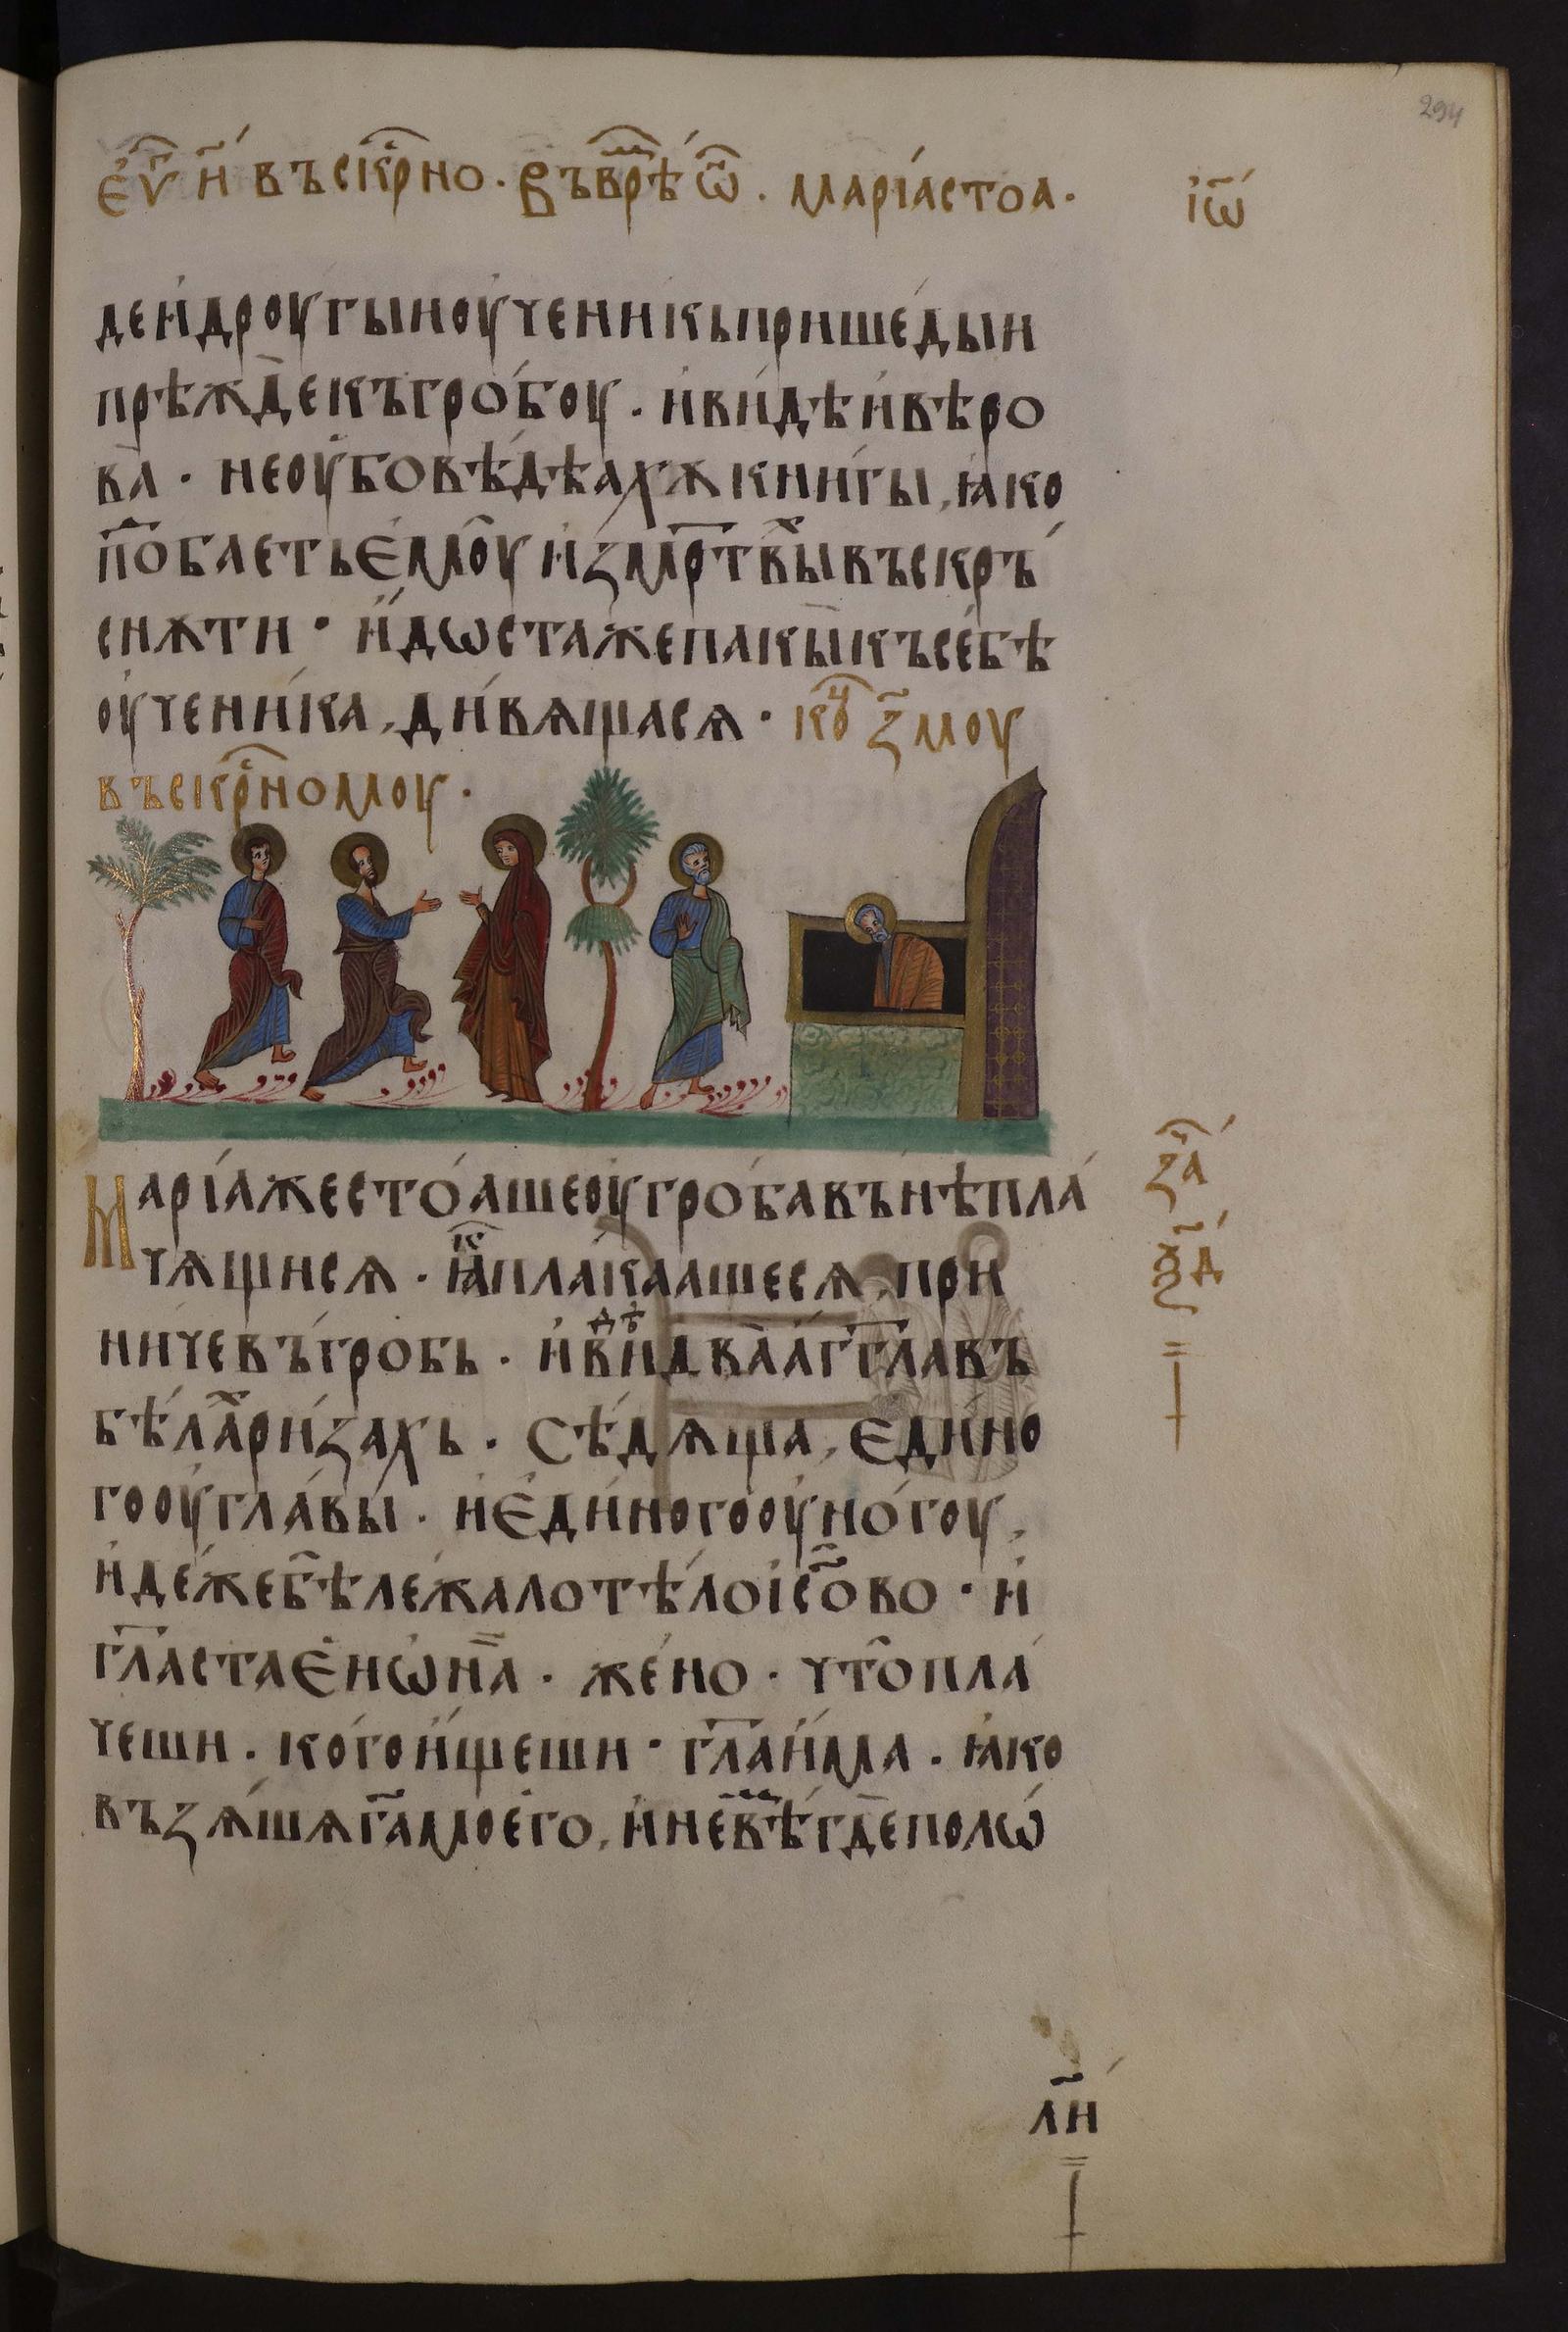 294
є҆ѵⷢ҇ и҃ въскрⷭ҇но. Въврⷨѣ ѡ҃. марі́астоа.
іѡ҃
деи҆дроугыиоу҆ченикьприше́дыи
прѣжⷣекъгро́боу. и҆ви́дѣи҆вѣро
ва. неоу҆бовѣ́дѣахѫкни́гы, ꙗ҆ко
пⷣобаетьємоуи҆змрⷮтвыⷯвъскръ
снѫти · и҆́дѡстажепакыкъсе́бѣ
оу҆чени́ка, ди́вѧщасѧ · коⷰ҇ з҃моу
въскрⷭ҇номоу.
Марі́ажестоа́шеоу҆гро́бавънѣпла́
чѧщисѧ. ꙗ҆ⷦ҇пла́каашесѧ, при
ничевъ́гробь. и҆ви́дѣдваа҆́гг҃лавъ
бѣ́лаⷯри́захь. Сѣ́дѧща, єди́но
гооу҆гла́вы. и҆єди́ногооу҆но́гоу,
и҆де́жебѣ̀лежа́лотѣ́лоісⷭ҇ово · и҆
гл҃астаєи҆ѡ҆на̀. же́но. что̀пла́
чеши. ко́гои҆́щеши · гл҃аи҆́ма. ꙗ҆ко
възѧ́шѧг҃амоего̀, и҆невⷨѣгдеполѡ́
заⷱ҇
ѯ҃д
л҃и